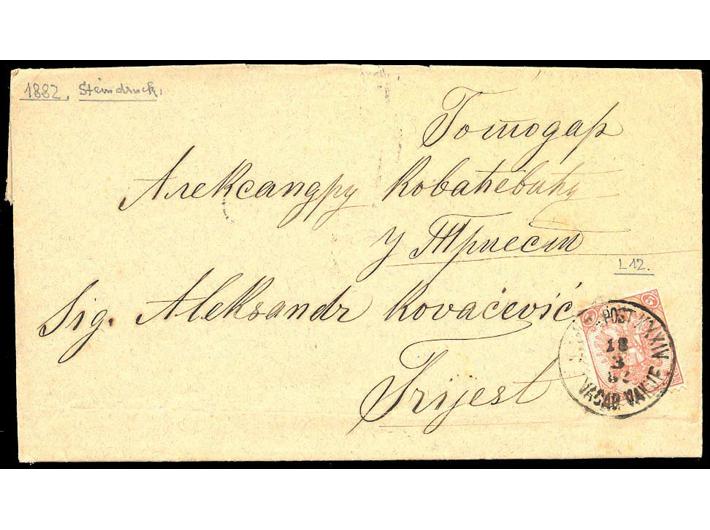 1882. Steindruck.
Господар
Александру Ковачевићу
у Триест
L12.
Sig. Aleksandr Kovačević
Trijest
5
POST XXXIV
18
3
VACAR VAKUF